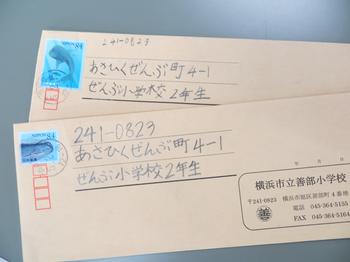 NIPPON 84
241-0823
あさひくぜんぶ町4-1
ぜんぶ小学校2年生
NIPPON 84
241-0823
あさひくぜんぶ町4-1
ぜんぶ小学校2年生
年 月 日
横浜市立善部小学校
〒241-0823 横浜市旭区善部町4番地
電話 045-364-5155
FAX 045-364-5164